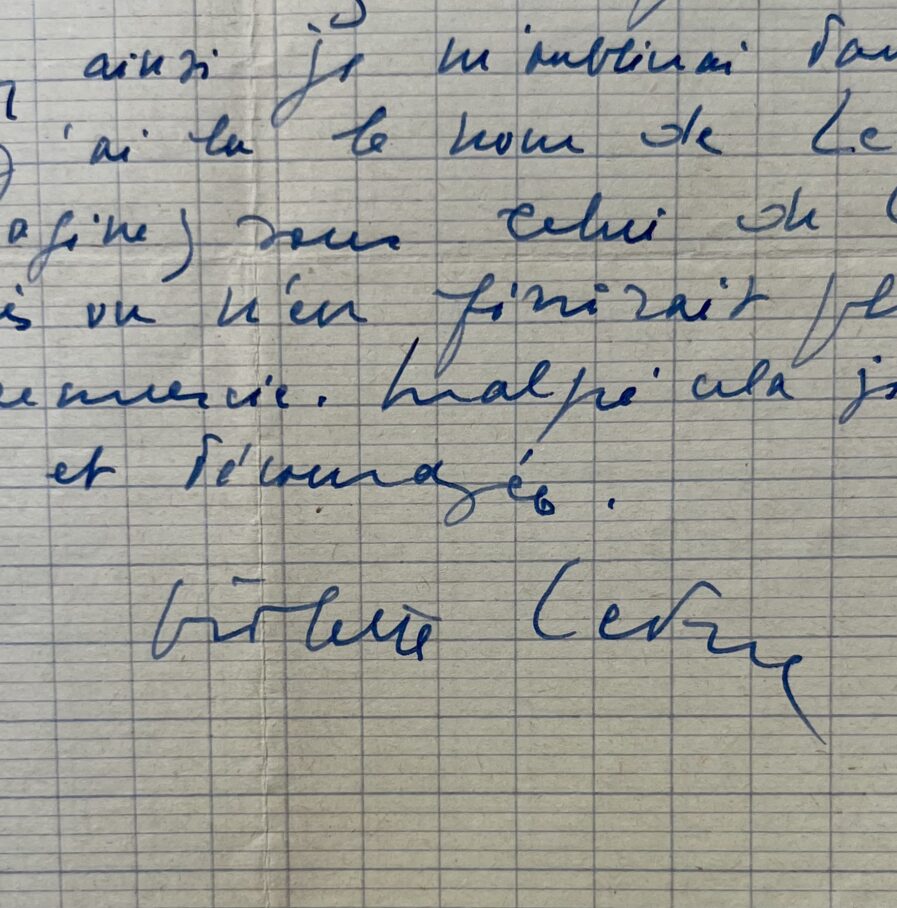 ainsi je m'oublierai dans
j'ai lu le nom de Le
agine) sous celui de
is on n'en finirait
remercie. Malgré cela je
et découragée.
Violette Leduc